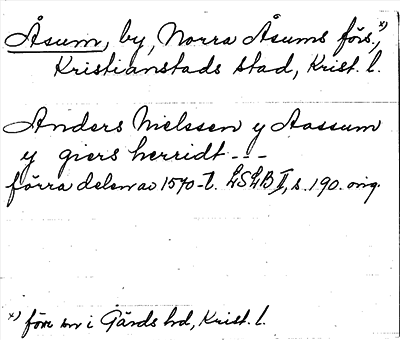 Åsum, by, Norra Åsums förs.,x)
Kristianstads stad, Krist. l.
Anders Nielssen y Aassum
y giers herridt ---
förra delen av 1570-t. LSLB II, s. 190. orig.
x) förr sn i Gärds hd, Krist. l.